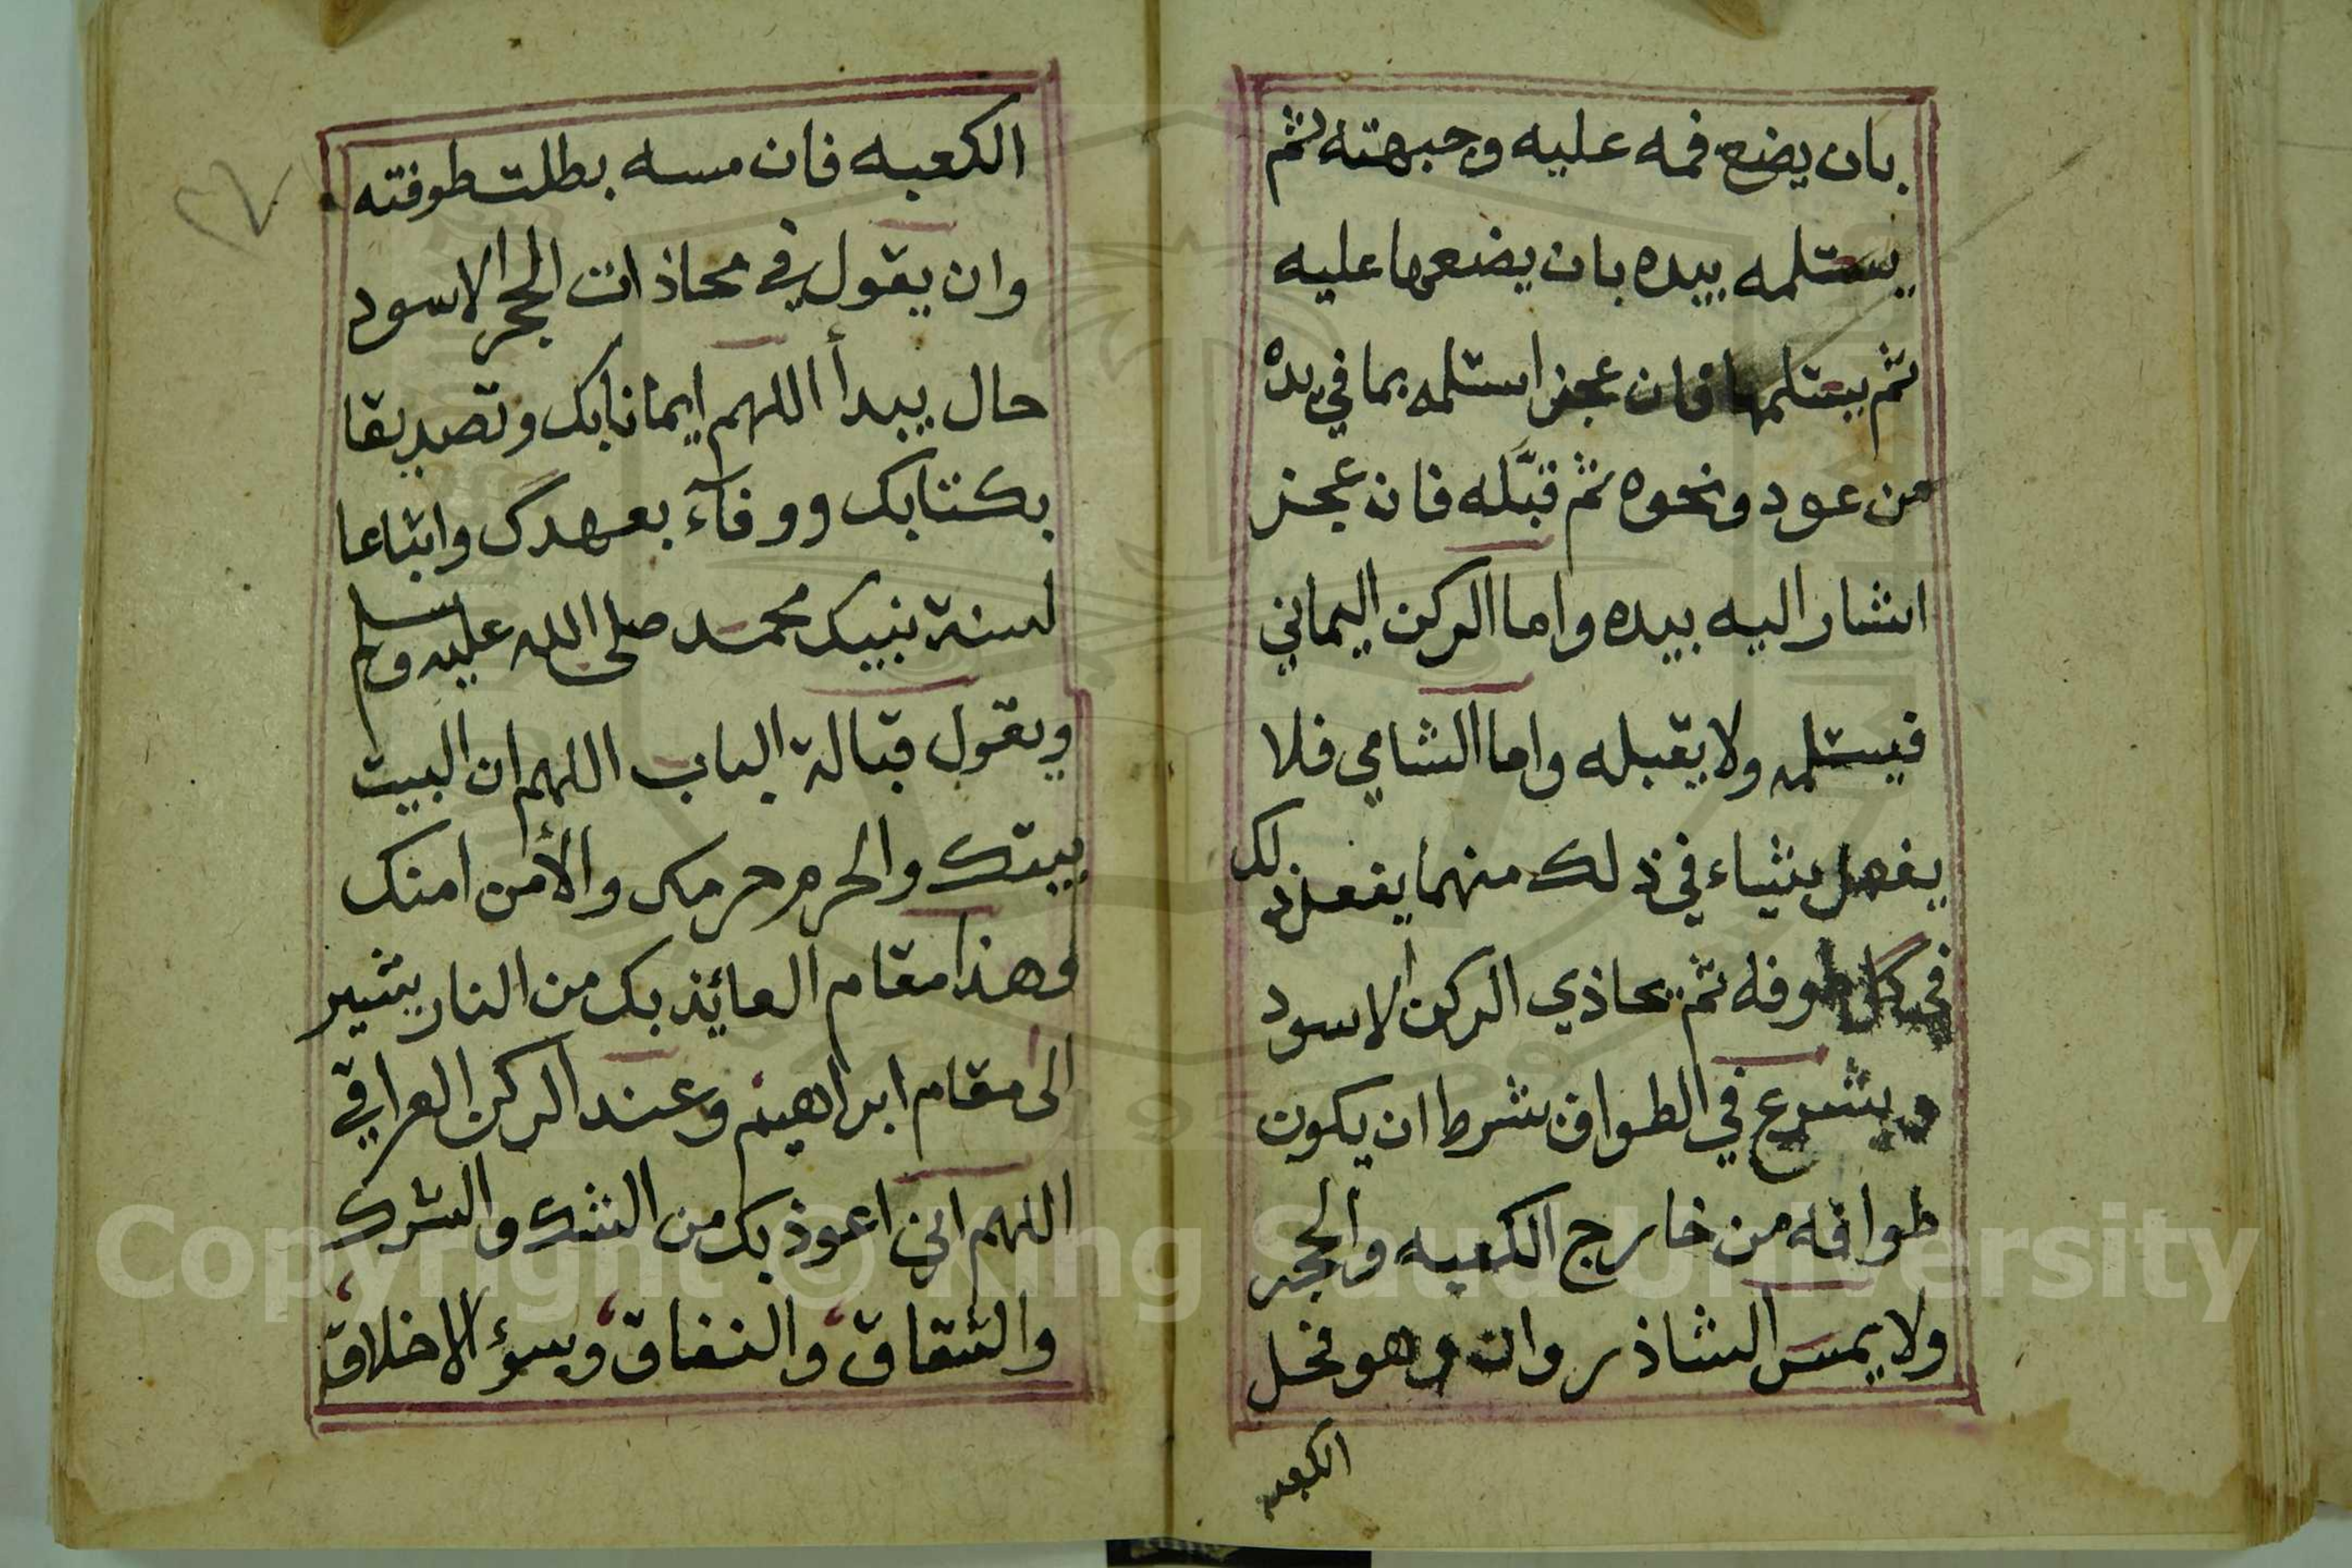 بان يضع فمه عليه وجبهته ثم
يستلمه بيده بان يضعها عليه
ثم يستلمها فان عجز استلمه بما في يده
من عود ونحوه ثم قبّله فان عجز
اشار اليه بيده واما الركن اليماني
فيستلمه ولا يقبله واما الشامي فلا
يفعل شياء في ذلك منهما يفعل ذلك
في كل طوفه ثم يحاذي الركن الاسود
ويشرع في الطواف بشرط ان يكون
طوافه من خارج الكعبه والحجر
ولا يمس الشاذروان وهو فخل
الكعبه
الكعبه فان مسه بطلت طوفته
وان يقول في محاذات الحجر الاسود
حال يبدأ اللهم ايمانا بك وتصديقا
بكتابك ووفآء بعهدك واتباعا
لسنة نبيك محمد صلى الله عليه وسلم
ويقول قبالة الباب اللهم ان البيت
بيتك والحرم حرمك والأمن امنك
وهذا مقام العائذ بك من النار يشير
الى مقام ابراهيم وعند الركن العراقي
اللهم اني اعوذ بك من الشك والشرك
والشقاق والنفاق وسؤ الاخلاق
٢٧
Copyright © King Saud University